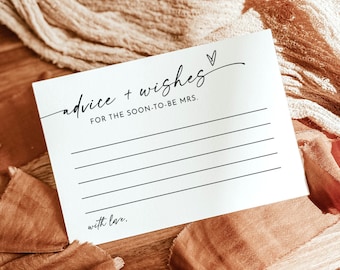 advice + wishes
FOR THE SOON-TO-BE MRS.
with love,